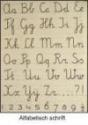 Aa Bb Cc Dd Ee
Ff Gg Hh Ii Jj
Kk Ll Mm Nn
Oo Pp Qq Rr Ss
Tt Uu Vv Ww
Xx Yy Zz ...?!
1 2 3 4 5 6 7 8 9
Alfabetisch schrift